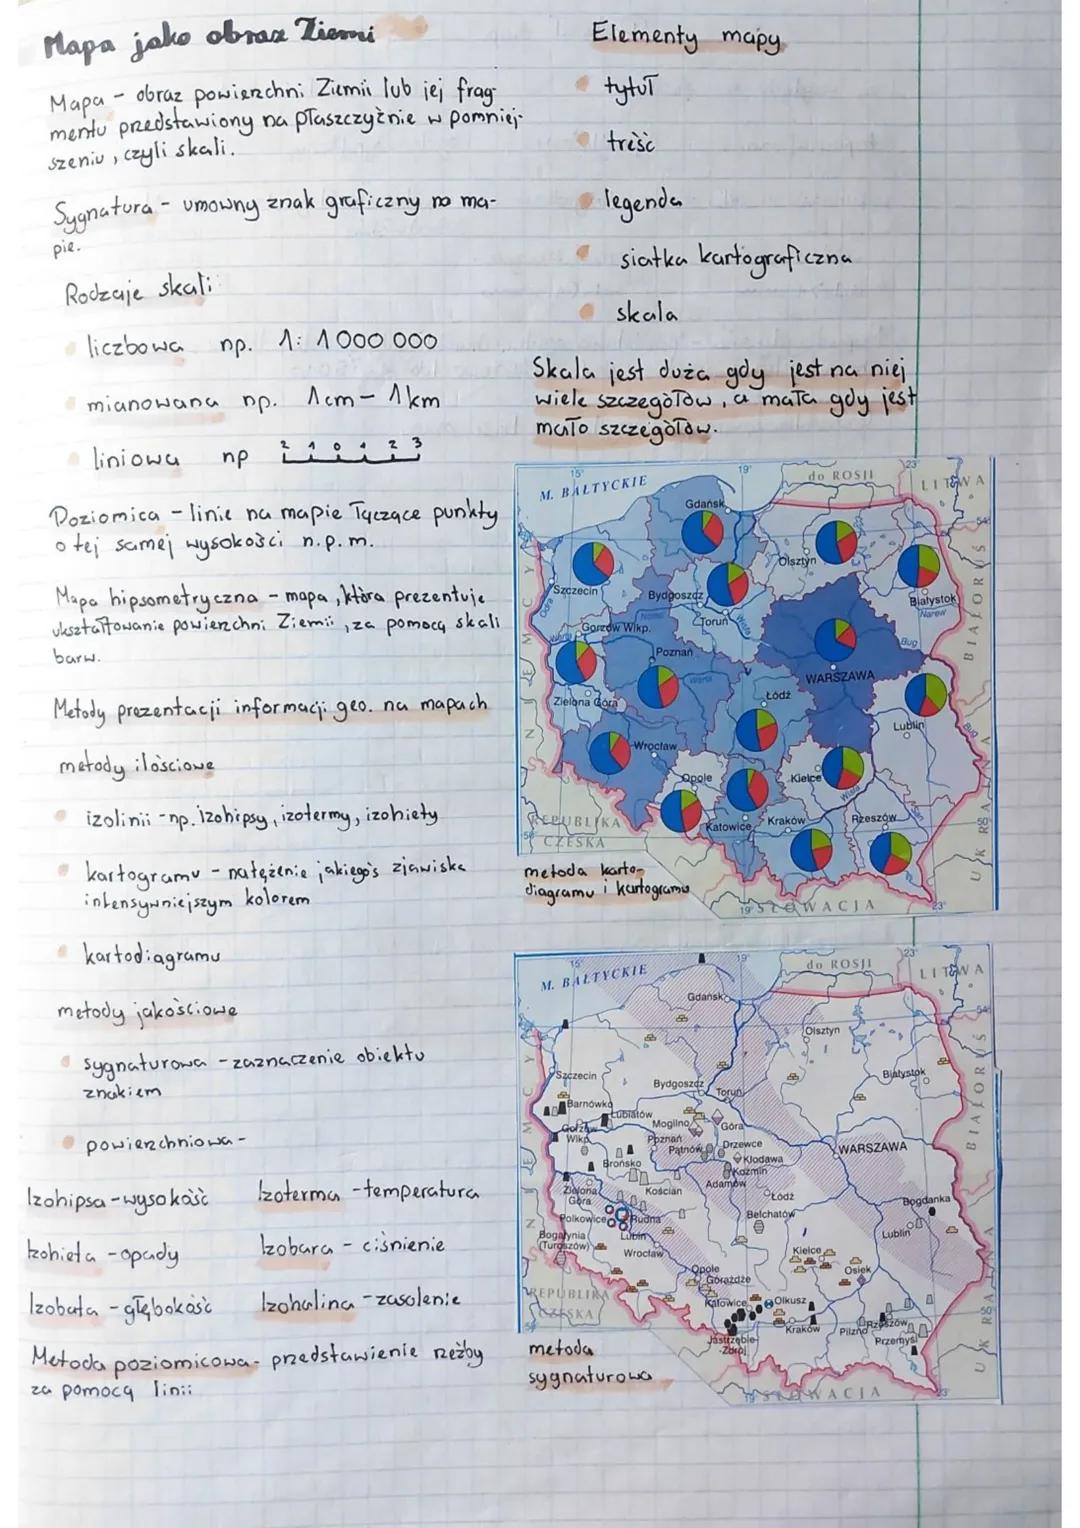 Mapa jako obraz Ziemi
Mapa - obraz powierzchni Ziemii lub jej frag-
mentu przedstawiony na płaszczyźnie w pomniej-
szeniu, czyli skali.
Sygnatura - umowny znak graficzny na ma-
pie.
Rodzaje skali
liczbowa np. 1: 1 000 000
mianowana np. 1cm - 1km
liniowa np 2 1 0 1 2 3
Poziomica - linie na mapie łączące punkty
o tej samej wysokości n.p.m.
Mapa hipsometryczna - mapa, która prezentuje
ukształtowanie powierzchni Ziemii, za pomocą skali
barw.
Metody prezentacji informacji geo. na mapach
metody ilościowe
izolinii - np. izohipsy, izotermy, izohiety
kartogramu - natężenie jakiegoś zjawiska
intensywniejszym kolorem
kartodiagramu
metody jakościowe
sygnaturowa - zaznaczenie obiektu
znakiem
powierzchniowa -
Izohipsa - wysokość Izoterma - temperatura
Izohieta - opady Izobara - ciśnienie
Izobata - głębokość Izohalina - zasolenie
Metoda poziomicowa - przedstawienie rzeźby
za pomocą linii
Elementy mapy
tytuł
treść
legenda
siatka kartograficzna
skala
Skala jest duża gdy jest na niej
wiele szczegółów, a mała gdy jest
mało szczegółów.
15° 19° 23°
M. BAŁTYCKIE
do ROSJI
LITWA
54°
Gdańsk
Olsztyn
Szczecin
Odra
Bydgoszcz
Białystok
Narew
Toruń
Wisła
Gorzów Wlkp.
Noteć
Warta
Bug
Poznań
Warta
WARSZAWA
Zielona Góra
Łódź
Lublin
Bug
NIEMCY
BIAŁORUŚ
Wrocław
Opole
Kielce
Wisła
REPUBLIKA
CZESKA
50°
Katowice
Kraków
Rzeszów
San
50°
UKRAINA
SŁOWACJA
19° 23°
metoda karto-
diagramu i kartogramu
15° 19° 23°
M. BAŁTYCKIE
do ROSJI
LITWA
54°
Gdańsk
Olsztyn
Szczecin
Bydgoszcz
Białystok
Toruń
Barnówko
Lubiatów
Gorzów
Wlkp.
Mogilno
Góra
Poznań
Pątnów
Drzewce
WARSZAWA
Kłodawa
Brońsko
Koźmin
Adamów
Zielona
Góra
Kościan
Łódź
Bogdanka
Polkowice
Rudna
Bełchatów
Bogatynia
(Turoszów)
Lubin
Lublin
Wrocław
Kielce
NIEMCY
BIAŁORUŚ
Opole
Górażdże
Osiek
REPUBLIKA
CZESKA
Katowice
Olkusz
50°
Kraków
Pilzno
Rzeszów
Przemyśl
Jastrzębie-
-Zdrój
UKRAINA
SŁOWACJA
19° 23°
metoda
sygnaturowa